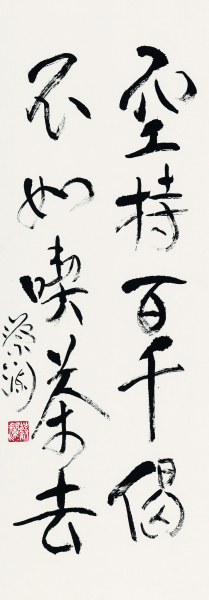 空持百千偈
不如喫茶去
蔡瀾